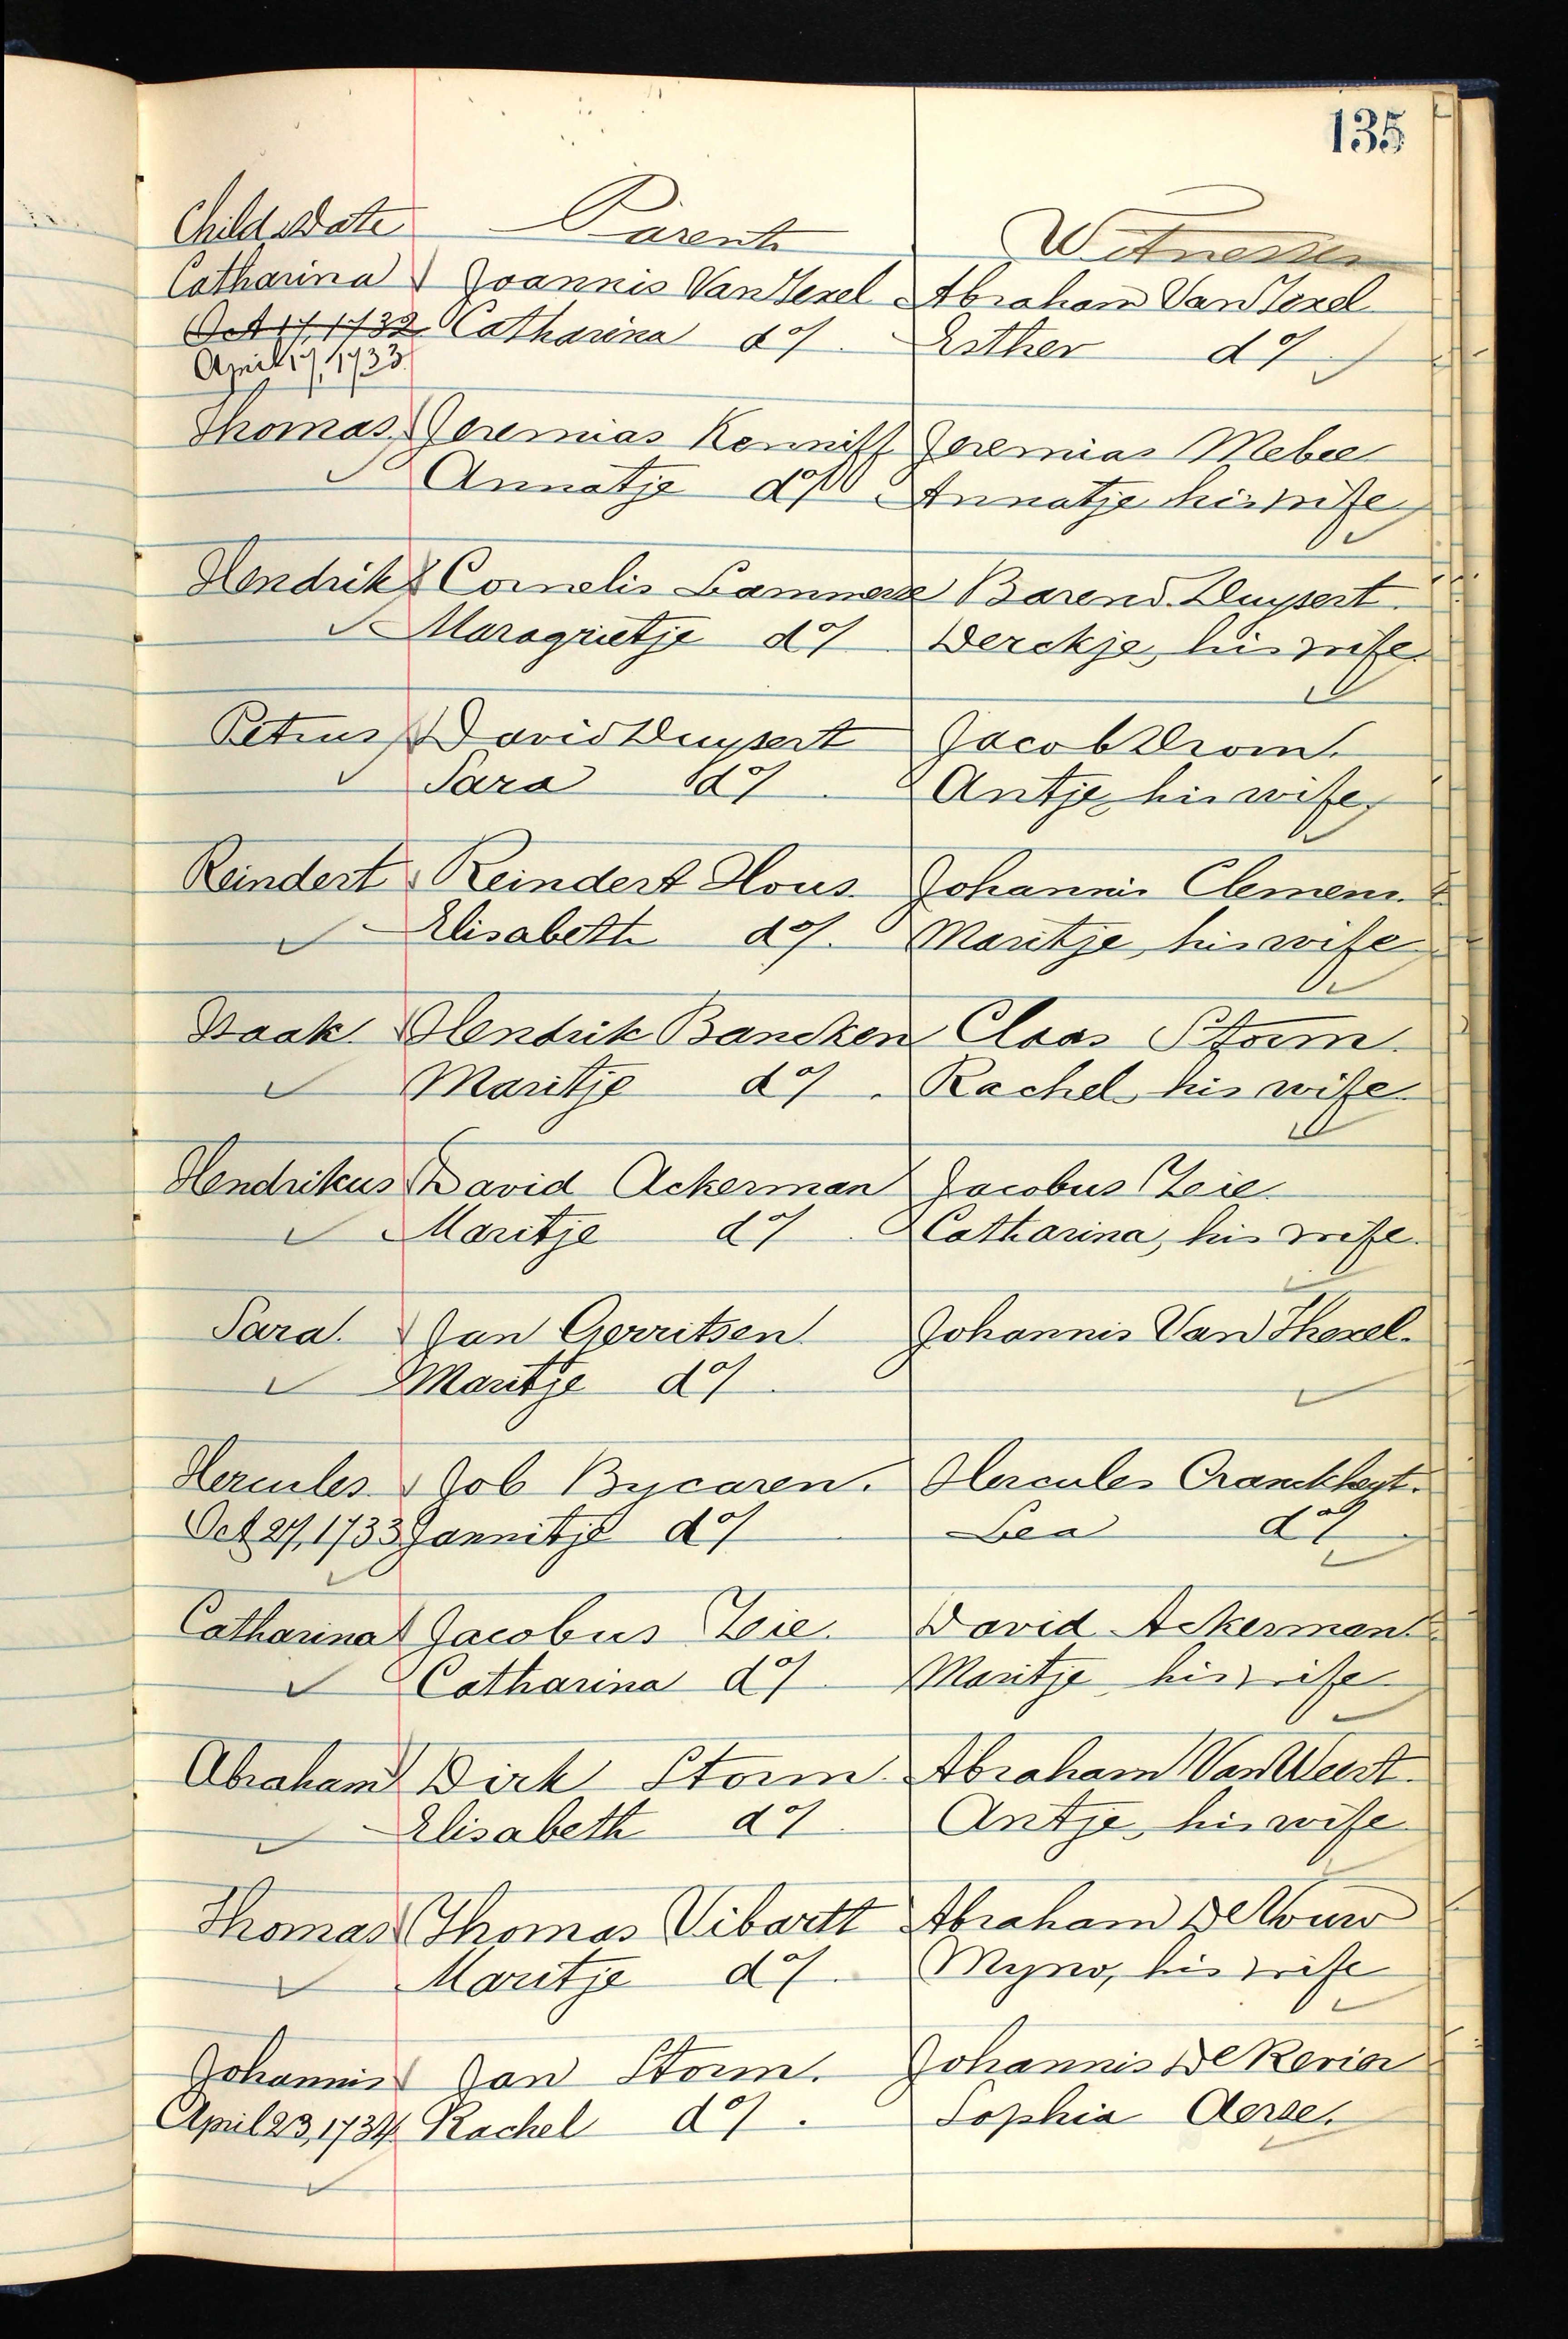 135
Child & Date Parents Witnesses
Catharina Joannis Van Texel Abraham Van Texel
Oct 17, 1732 Catharina do Esther do
April 17, 1733
Thomas Jeremias Kenniff Jeremias Mebee
Annatje do Annatje his wife
Hendrik Cornelis Lammerse Barend Duypert.
Maragrietje do Derckje, his wife.
Petrus David Duypert Jacob Drom.
Sara do. Antje, his wife,
Reindert Reindert Hous. Johannis Clemens.
Elisabeth do. Maritje, his wife
Isaak. Hendrik Bancken Claas Storm.
Maritje do. Rachel, his wife.
Hendrikus David Ackerman Jacobus Zeie.
Maritje do. Catharina, his wife.
Sara. Jan Gerritsen. Johannis Van Thexel.
Maritje do.
Hercules. Job Bycaren. Hercules Cranckheyt.
Oct 27, 1733 Jannitje do Lea do.
Catharina Jacobus Zeie. David Ackerman.
Catharina do. Maritje, his wife.
Abraham Dirk Storm. Abraham Van Weert.
Elisabeth do. Antje, his wife
Thomas Thomas Vibartt Abraham De Vouw
Maritje do. Myno, his wife
Johannis Jan Storm. Johannis De Revier
April 23, 1734 Rachel do. Sophia Aerse.